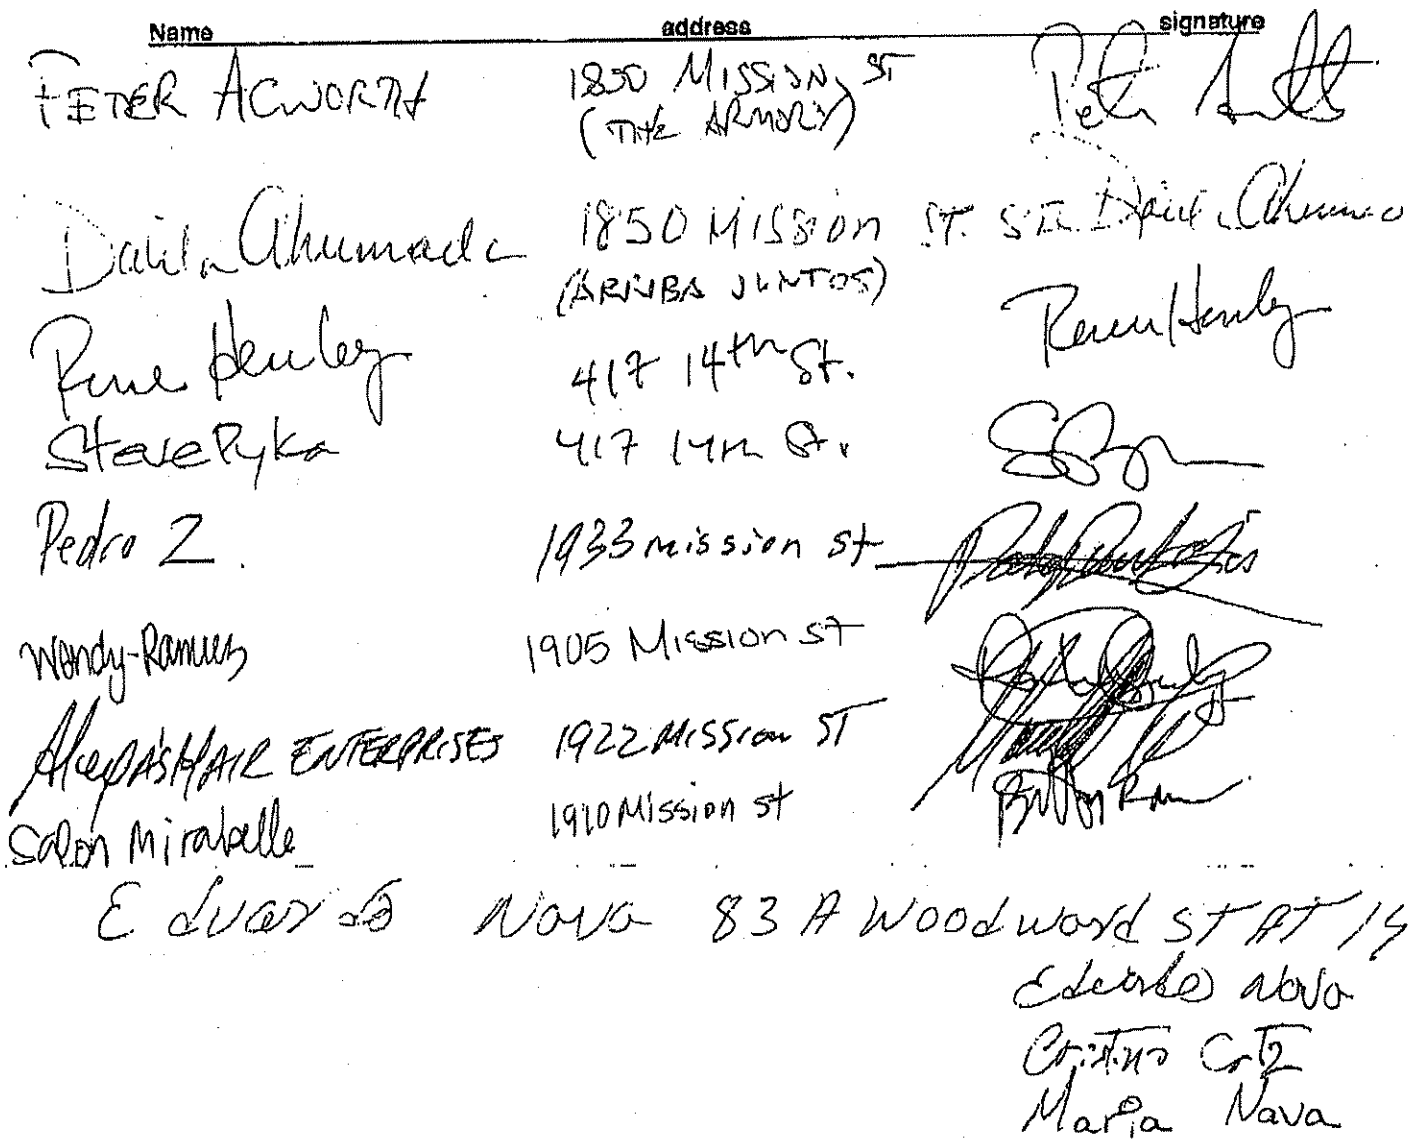 Name address signature
PETER ACWORTH 1800 MISSION ST Peter
(THE ARMORY)
Ahumada 1850 Mission ST.
(ARRIBA JUNTOS)
Rene Henley 417 14th St. Henley
Steve Pyka 417 14th St.
Pedro Z. 1933 mission st
Wendy-Ramirez 1905 Mission st
HAIR ENTERPRISES 1922 Mission ST
Salon Mirabelle 1910 Mission st
Eduardo Nava 83 A Woodward ST AT 14
Eduardo Nava
Maria Nava